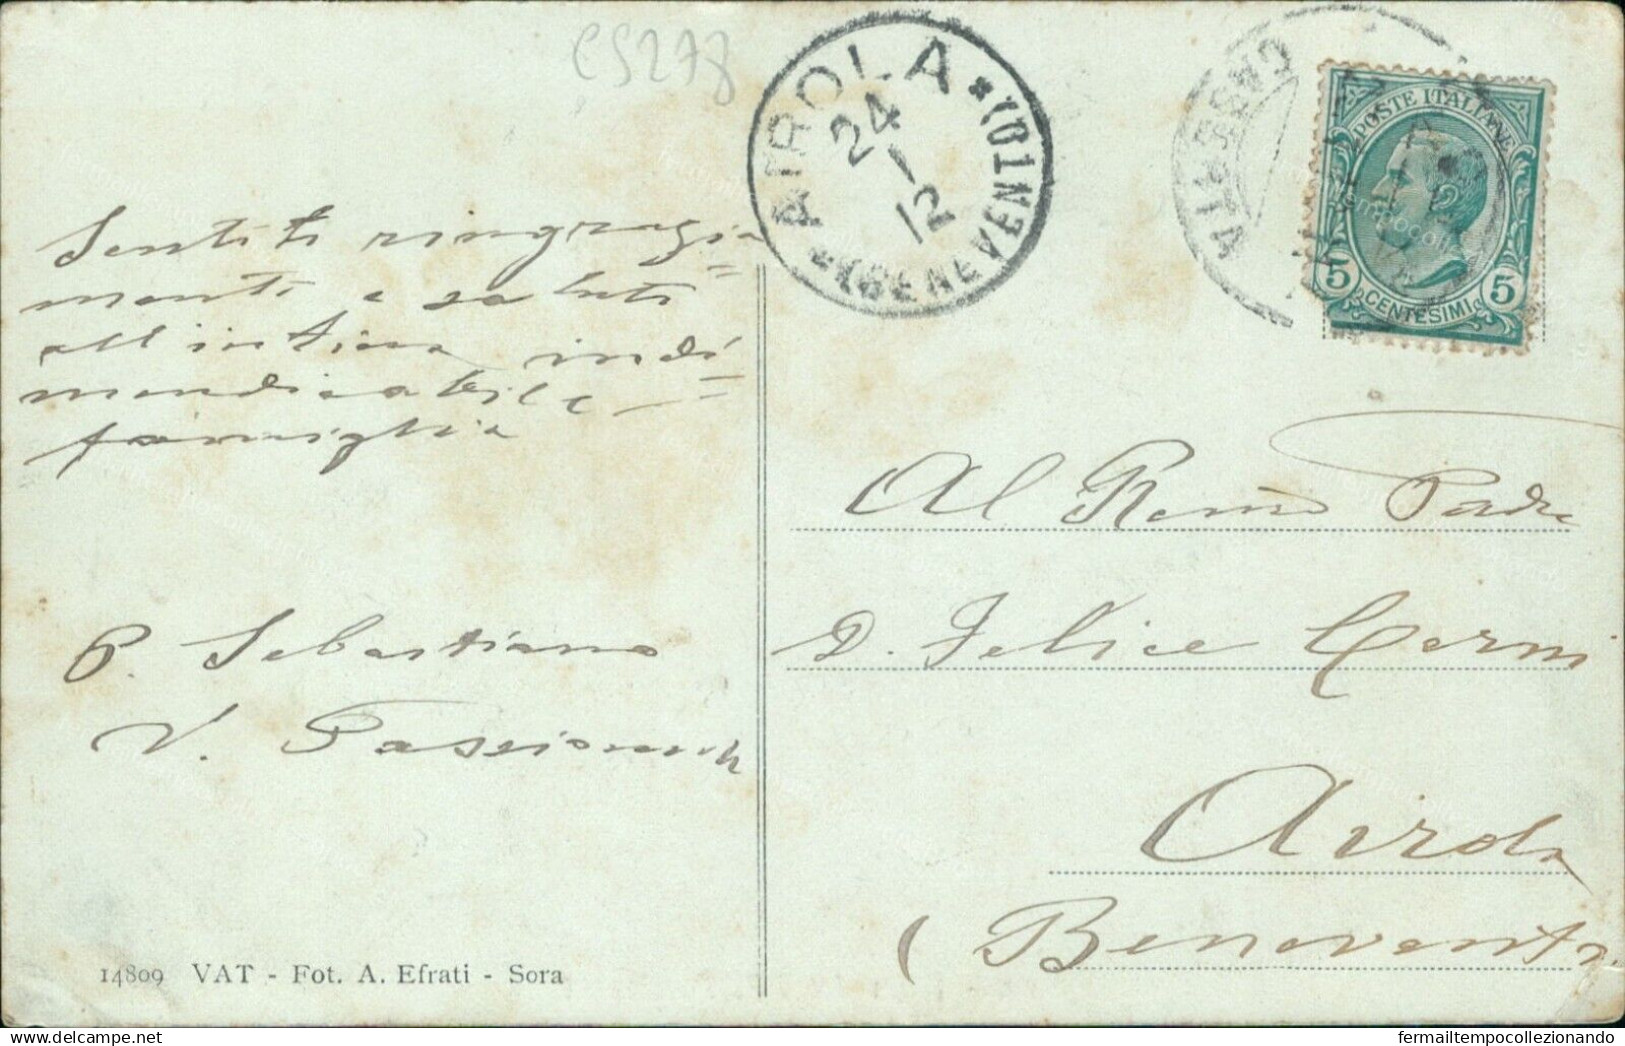 CS278
AIROLA
24 - 1 12
* (BENEVENTO) *
POSTE ITALIANE
5 CENTESIMI 5
Sentiti ringrazia=
menti e saluti
all'intima indi=
mendicabile
famiglia
P. Sebastiano
V. Passionista
Al Remo Padre
D. Felice Cerni
Airola
(Benevento
14809 VAT - Fot. A. Efrati - Sora
fermailtempocollezionando